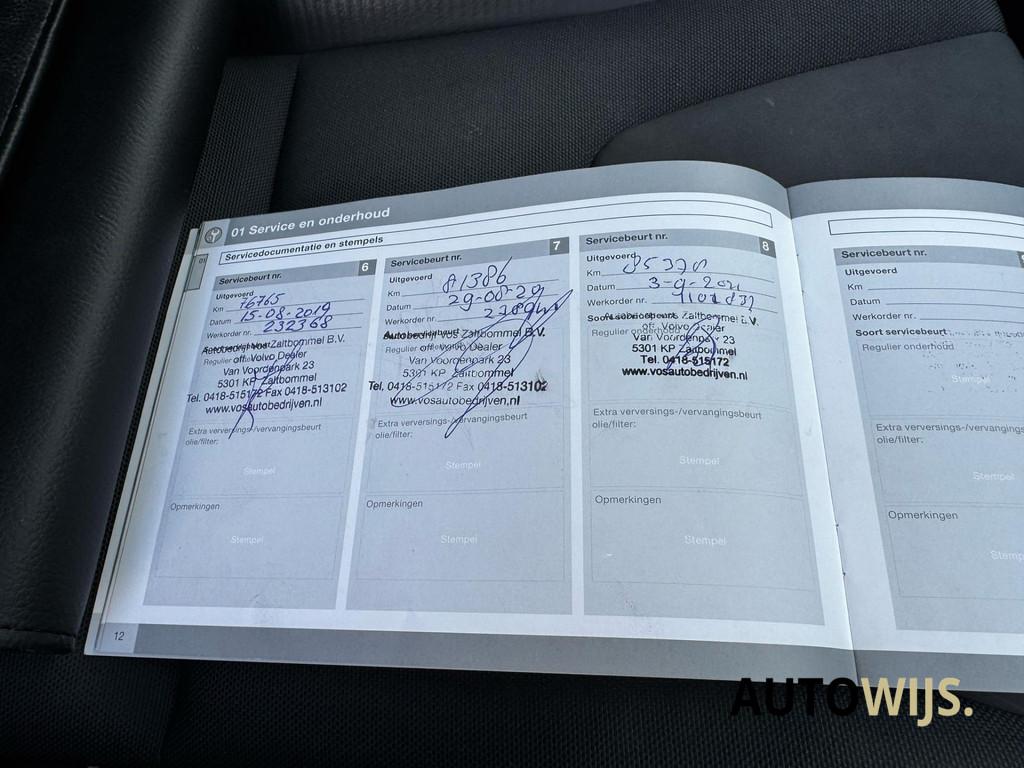 01 Service en onderhoud
Servicedocumentatie en stempels
01
Servicebeurt nr. 6
Uitgevoerd
Km 76765
Datum 15-08-2019
Werkorder nr. 232368
Autobedrijf Vos Zaltbommel B.V.
Regulier off. Volvo Dealer
Van Voordenpark 23
5301 KP Zaltbommel
Tel. 0418-515172 Fax 0418-513102
www.vosautobedrijven.nl
Extra verversings-/vervangingsbeurt
olie/filter:
Stempel
Opmerkingen
Stempel
Servicebeurt nr. 7
Uitgevoerd
Km 81386
Datum 29-08-20
Werkorder nr.
Autobedrijf Vos Zaltbommel B.V.
Regulier off. Volvo Dealer
Van Voordenpark 23
5301 KP Zaltbommel
Tel. 0418-515172 Fax 0418-513102
www.vosautobedrijven.nl
Extra verversings-/vervangingsbeurt
olie/filter:
Stempel
Opmerkingen
Stempel
Servicebeurt nr. 8
Uitgevoerd
Km 85370
Datum 3-9-2021
Werkorder nr.
Soort servicebeurt Zaltbommel B.V.
Regulier onderhoud off. Volvo Dealer
Van Voordenpark 23
5301 KP Zaltbommel
Tel. 0418-515172
www.vosautobedrijven.nl
Extra verversings-/vervangingsbeurt
olie/filter:
Stempel
Opmerkingen
Stempel
Servicebeurt nr.
Uitgevoerd
Km
Datum
Werkorder nr.
Soort servicebeurt
Regulier onderhoud
Stempel
Extra verversings-/vervangings
olie/filter:
Stempel
Opmerkingen
Stemp
12
AUTOWIJS.